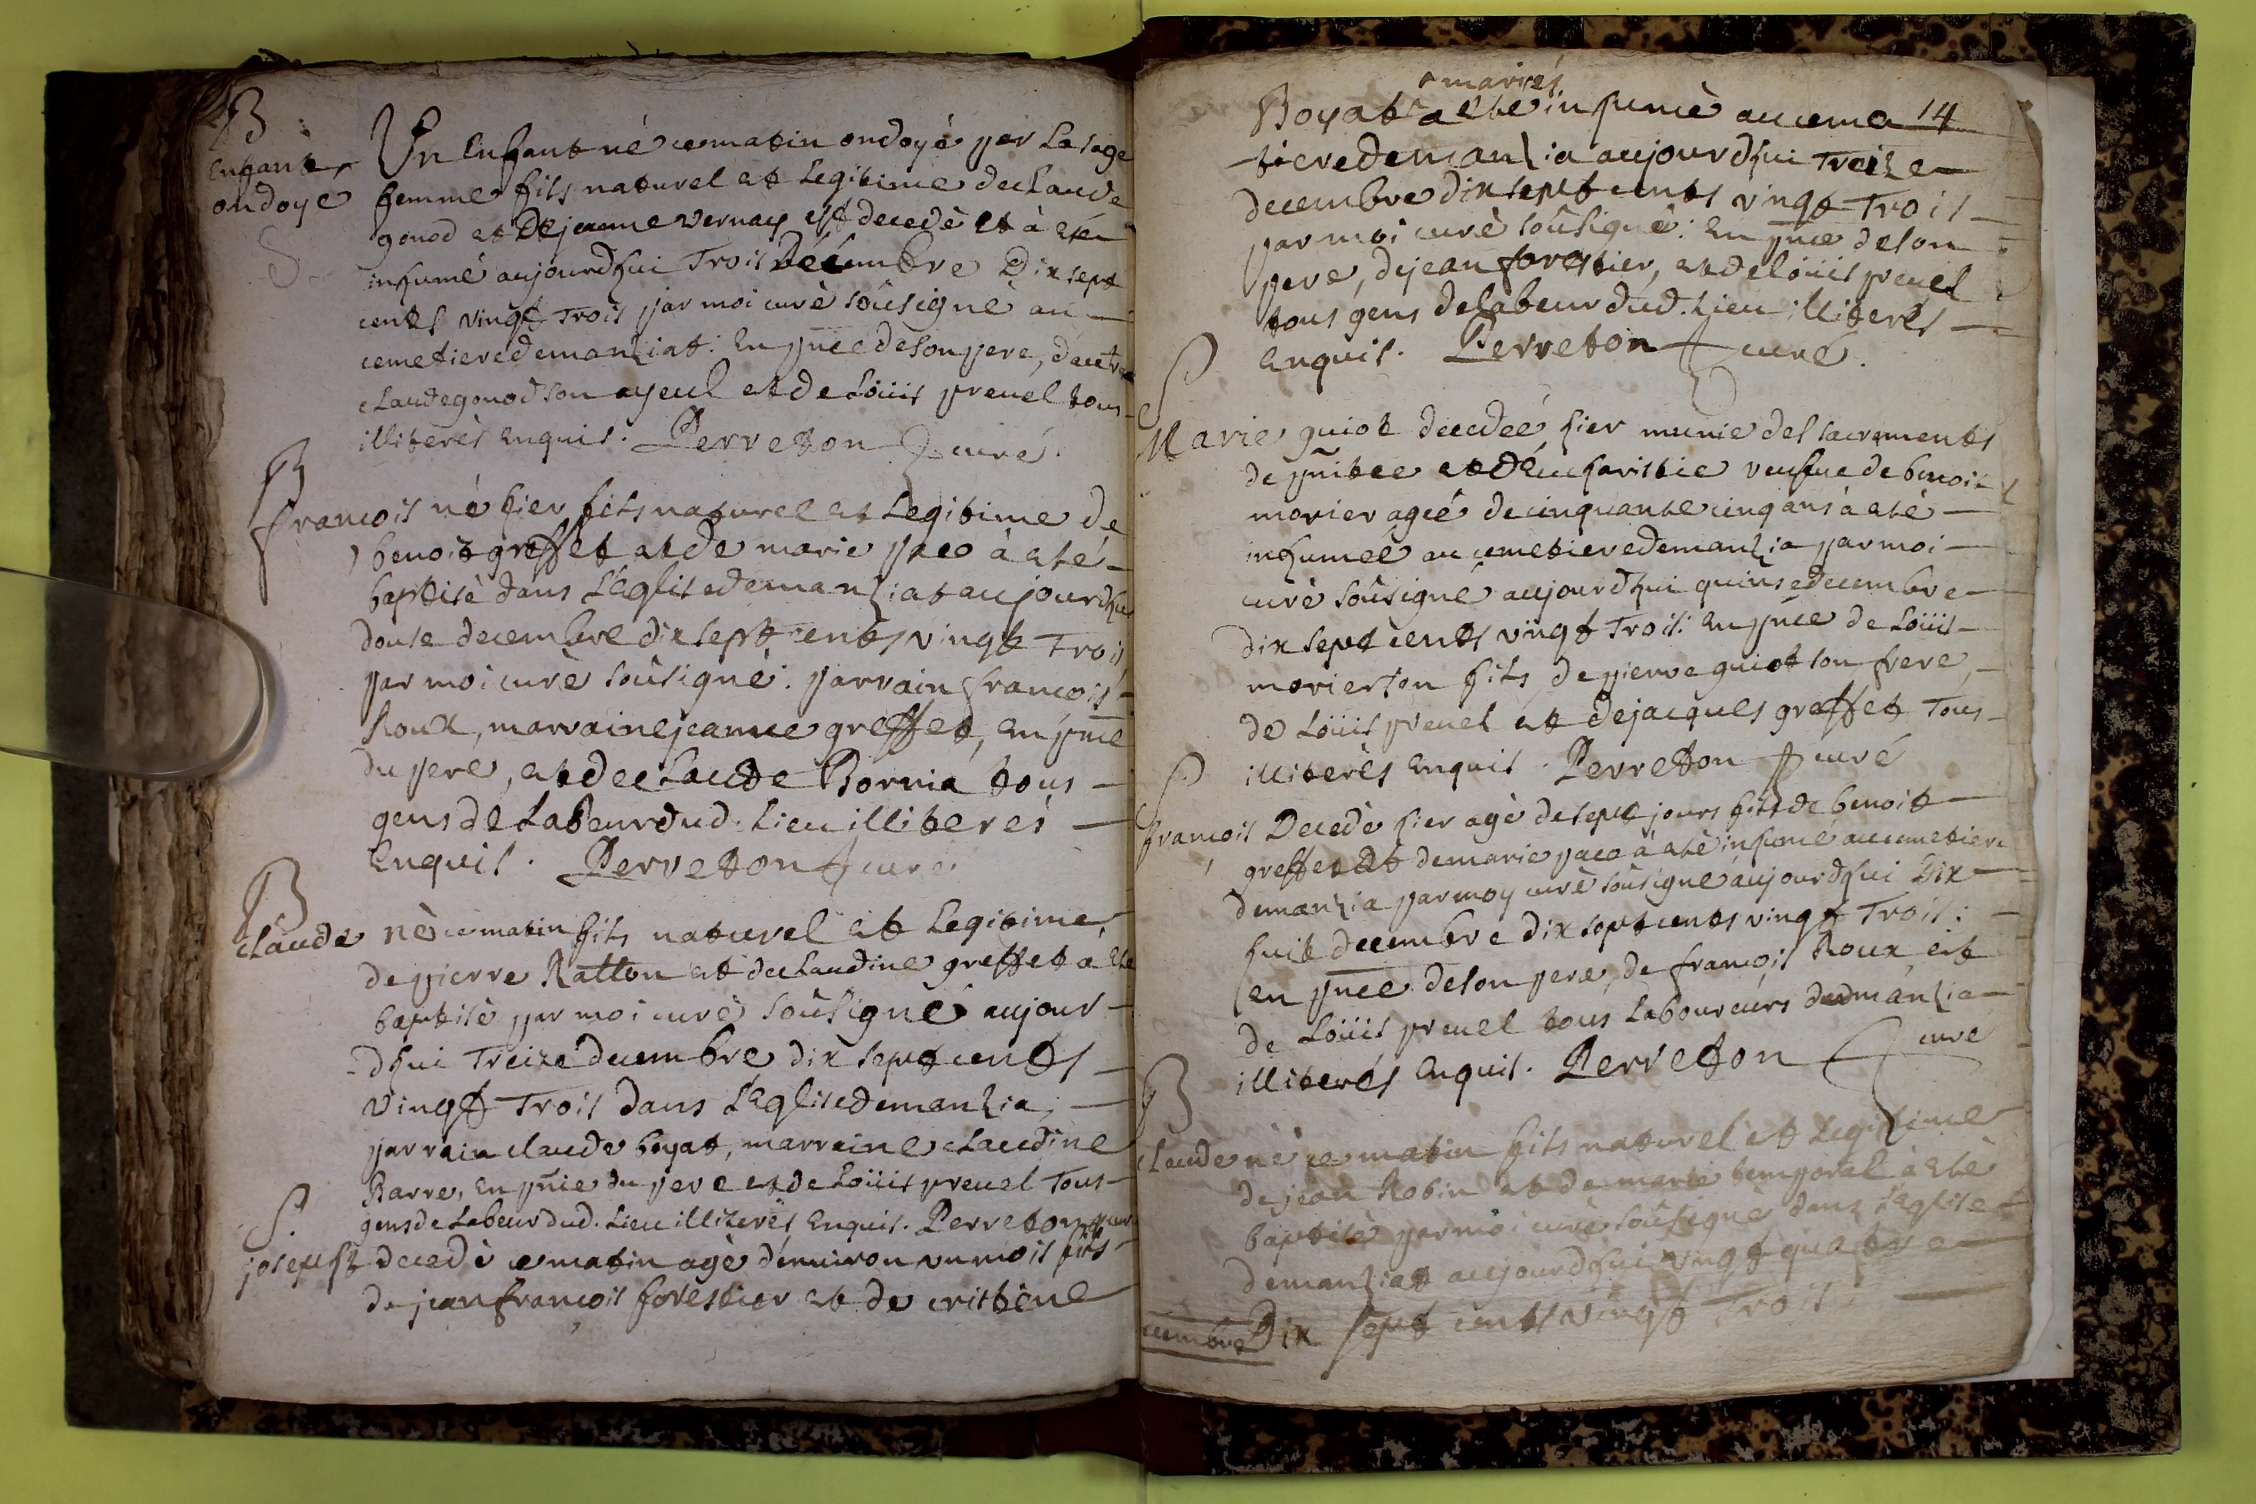 B
Enfant
ondoye
Un Enfant né ce matin ondoyé par La sage
femme fils naturel et Legitime de Claude
gonod et De jeanne vernay est decedè et à eté
inhumé aujourdhui Trois Décembre Dix sept
cents vingt Trois par moi curè soûsigné au
cemetiere de manziat: En pnce de son pere, d'autre
Claude gonod son ayeul et de Loüis preuel tous
illiterés Enquis. Perreton curé.
B
francois né hier fils naturel et Legitime de
benoit greffet et de marie paco à eté
baptisè dans L'Eglise de manziat aujourdhui
douse decembre dix sept cents vingt Trois
par moi curè soûsignè. parrain francois
Roux, marraine jeanne greffet, en pnce
du pere, et de Claude Bornia tous
gens de Labeur dud. Lieu illiterés
Enquis. Perreton curé.
B
Claude nè ce matin fils naturel et Legitime
de pierre Ratton et de Claudine greffet à eté
baptisè par moi curè soûsigné aujour-
dhui Treize decembre dix sept cents
vingt Trois dans L'Eglise de manzia;
parrain claude boyat, marraine Claudine
Barre, en pnce du pere et de Loüis preuel Tous
gens de Labeur dud. Lieu illiterés Enquis. Perreton curé
S.
joseph decedè ce matin agè d'enuiron un mois fils
de jean françois forestier et de cristine
mariés
Boyat a ete inhumè au ceme 14
tiere de manzia aujourdhui Treize
decembre dix sept cents vingt Trois
par moi curè soûsigné: En pnce de son
pere, de jean forestier, et de loüis preuel
tous gens de Labeur dud. Lieu illiterés
Enquis. Perreton curé.
S
Marie guiot decedée hier munie des sacrements
de pnitce et d'Eucharistie veufue de benoit
morier agée de cinquante cinq ans à eté
inhumée au cemetiere de manzia par moi
curè soûsigné aujourdhui quinse decembre
dix sept cents vingt Trois: en pnce de Loüis
morier son fils, de pierre guiot son frere,
de Loüis preuel et de jacques greffet Tous
illiterés Enquis. Perreton curé
S
françois Decedè hier agè de sept jours fils de benoit
greffet Et de marie paco à eté inhumé au cemetiere
de manzia par moy curè soûsigné aujourdhui Dix
huit decembre dix sept cents vingt Trois:
en pnce de son pere, de françois Roux, et
de Loüis preuel tous Laboureurs dud manzia
illiterés Enquis. Perreton curé
B
Claude nè ce matin fils naturel et Legitime
de jean Robin et de marie temporal à eté
baptisè par moi curè soûsigné dans L'Eglise
de manziat aujourdhui vingt quatre
cembre Dix sept cents vingt Trois: